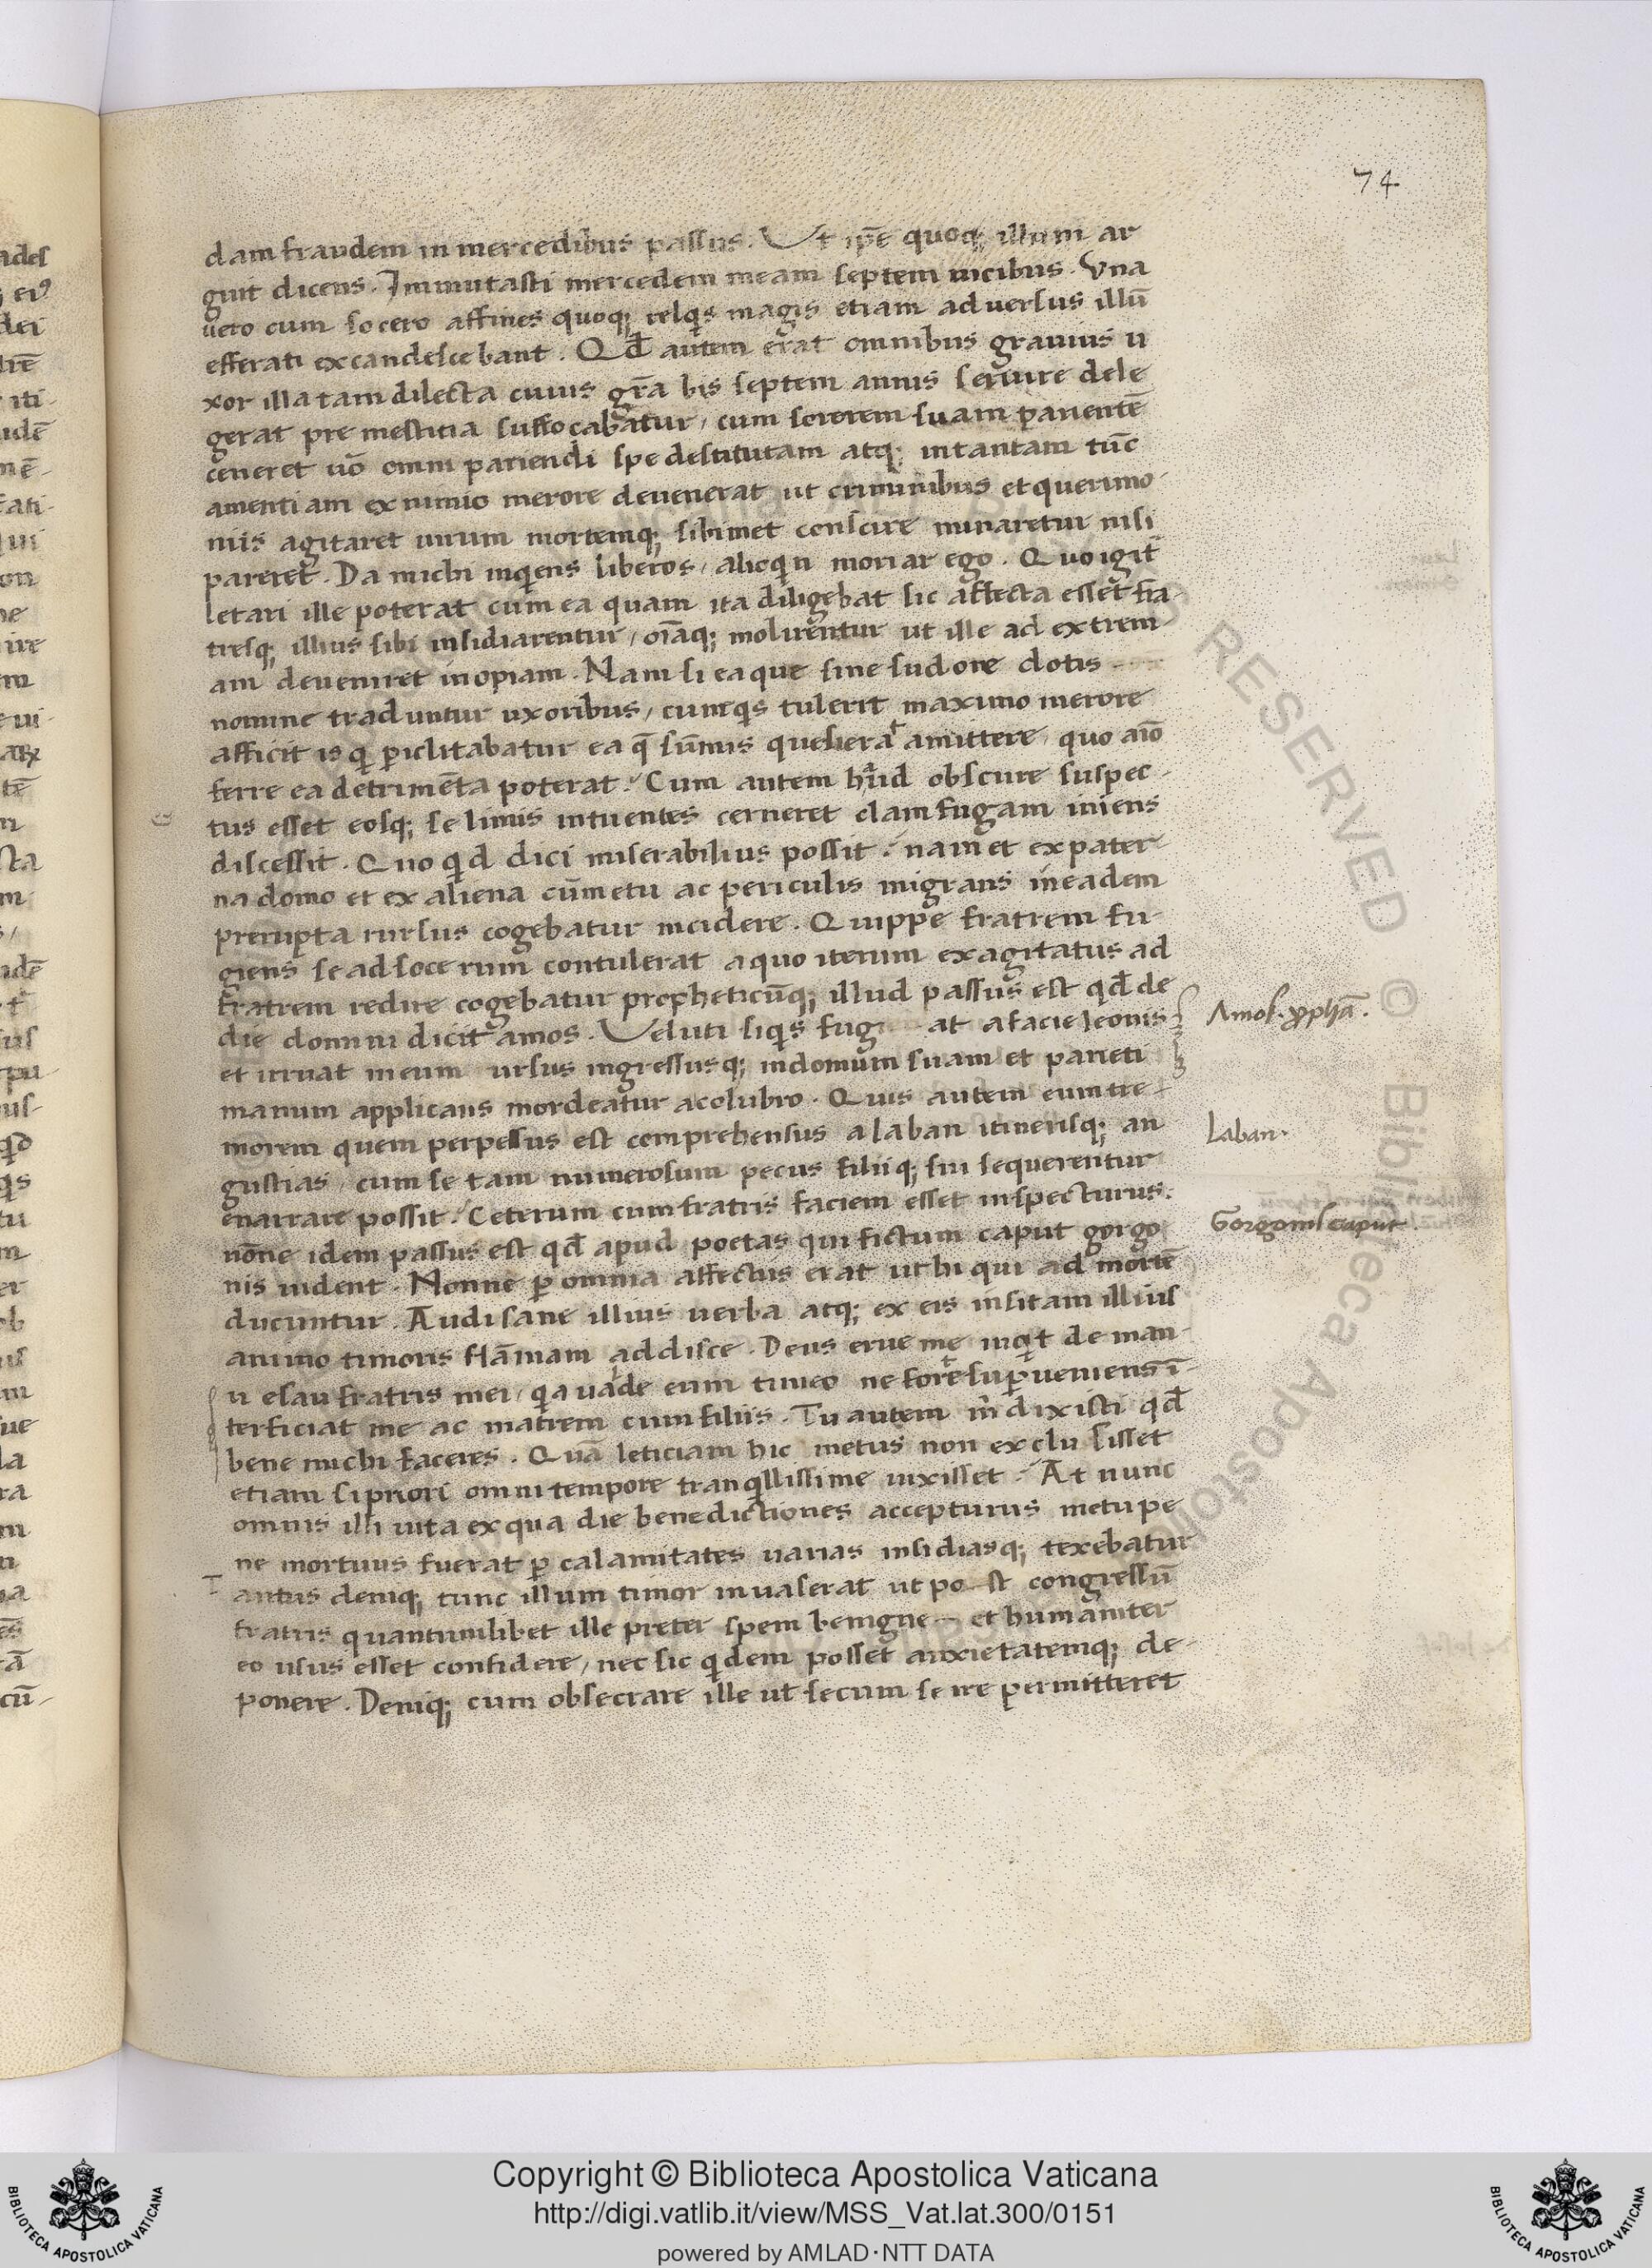 74
dam fraudem in mercedibus passus. Ut ip̄e quoq; illum ar
guit dicens. Immutasti mercedem meam septem uicibus. Vna
uero cum socero affines quoq; relqͥs magis etiam aduersus illū
efferati excandescebant. Qđ autem erat omnibus grauius u
xor illa tam dilecta cuius gr̄a bis septem annis seruire dele
gerat pre mestitia suffocabatur, cum sororem suam parientē
cerneret uō omni pariendi spe destitutam atq; intantam tūc
amentiam ex nimio merore deuenerat ut criminibus et querimo-
niis agitaret uirum mortemq; sibimet conscire minaretur nisi
pareret. Da michi inqͥens liberos, alioqͥn moriar ego. Quo igit̄
letari ille poterat cum ea quam ita diligebat sic affecta esset fra-
tresq; illius sibi insidiarentur, oīaq; molirentur ut ille ad extrem-
am deueniret inopiam. Nam si ea que sine sudore dotis
nomine traduntur uxoribus, cumqͥs tulerit maximo merore
afficit is qͥ ꝑiclitabatur ea q̄ sūmis quesierat amittere, quo aīo
ferre ea detrimēta poterat? Cum autem haud obscure suspec-
tus esset eosq; se limis intuentes cerneret clam fugam iniens
discessit. Quo qͥd dici miserabilius possit? nam et ex pater
na domo et ex aliena cū metu ac periculis migrans in eadem
prerupta rursus cogebatur incidere. Quippe fratrem fu-
giens se ad socerum contulerat a quo iterum exagitatus ad
fratrem redire cogebatur propheticūq; illud passus est qđ de
die domini dicit amos. Veluti siqͥs fugiat a facie leonis
et irruat in eum ursus ingressusq; in domum suam et parieti
manum applicans mordeatur a colubro. Quis autem eum tre-
morem quem perpessus est comprehensus a laban itinerisq; an
gustias, cum se tam numerosum pecus filiiq; sui sequerentur
enarrare possit? Ceterum cum fratris faciem esset inspecturus.
nōne idem passus est qđ apud poetas qui fictum caput gorgo
nis uident. Nonne ꝑ omnia affectus erat ut hi qui ad mortē
ducuntur. Audi sane illius uerba atq; ex eis insitam illius
animo timoris flāmam addisce. Deus erue me inqͥt de man-
u esau fratris mei, qͥa ualde eum timeo ne forte suꝑueniens ī-
terficiat me ac matrem cum filiis. Tu autem m̄ dixisti qđ
bene michi faceres. Quā leticiam hic metus non exclusisset
etiam si priori omni tempore tranqͥllissime uixisset? At nunc
omnis illi uita ex qua die benedictiones accepturus metu pe
ne mortuus fuerat ꝑ calamitates uarias insidiasq; texebatur
T antus deniq; tunc illum timor inuaserat ut post congressū
fratris quantumlibet ille preter spem benigne et humaniter
eo usus esset confidere, nec sic qͥdem posset anxietatemq; de-
ponere. Deniq; cum obsecrare ille ut secum se ire permitteret
Amos. ꝓphā.
Laban.
Gorgonis caput.
Copyright © Biblioteca Apostolica Vaticana
http://digi.vatlib.it/view/MSS_Vat.lat.300/0151
powered by AMLAD·NTT DATA
BIBLIOTECA APOSTOLICA VATICANA
BIBLIOTECA APOSTOLICA VATICANA